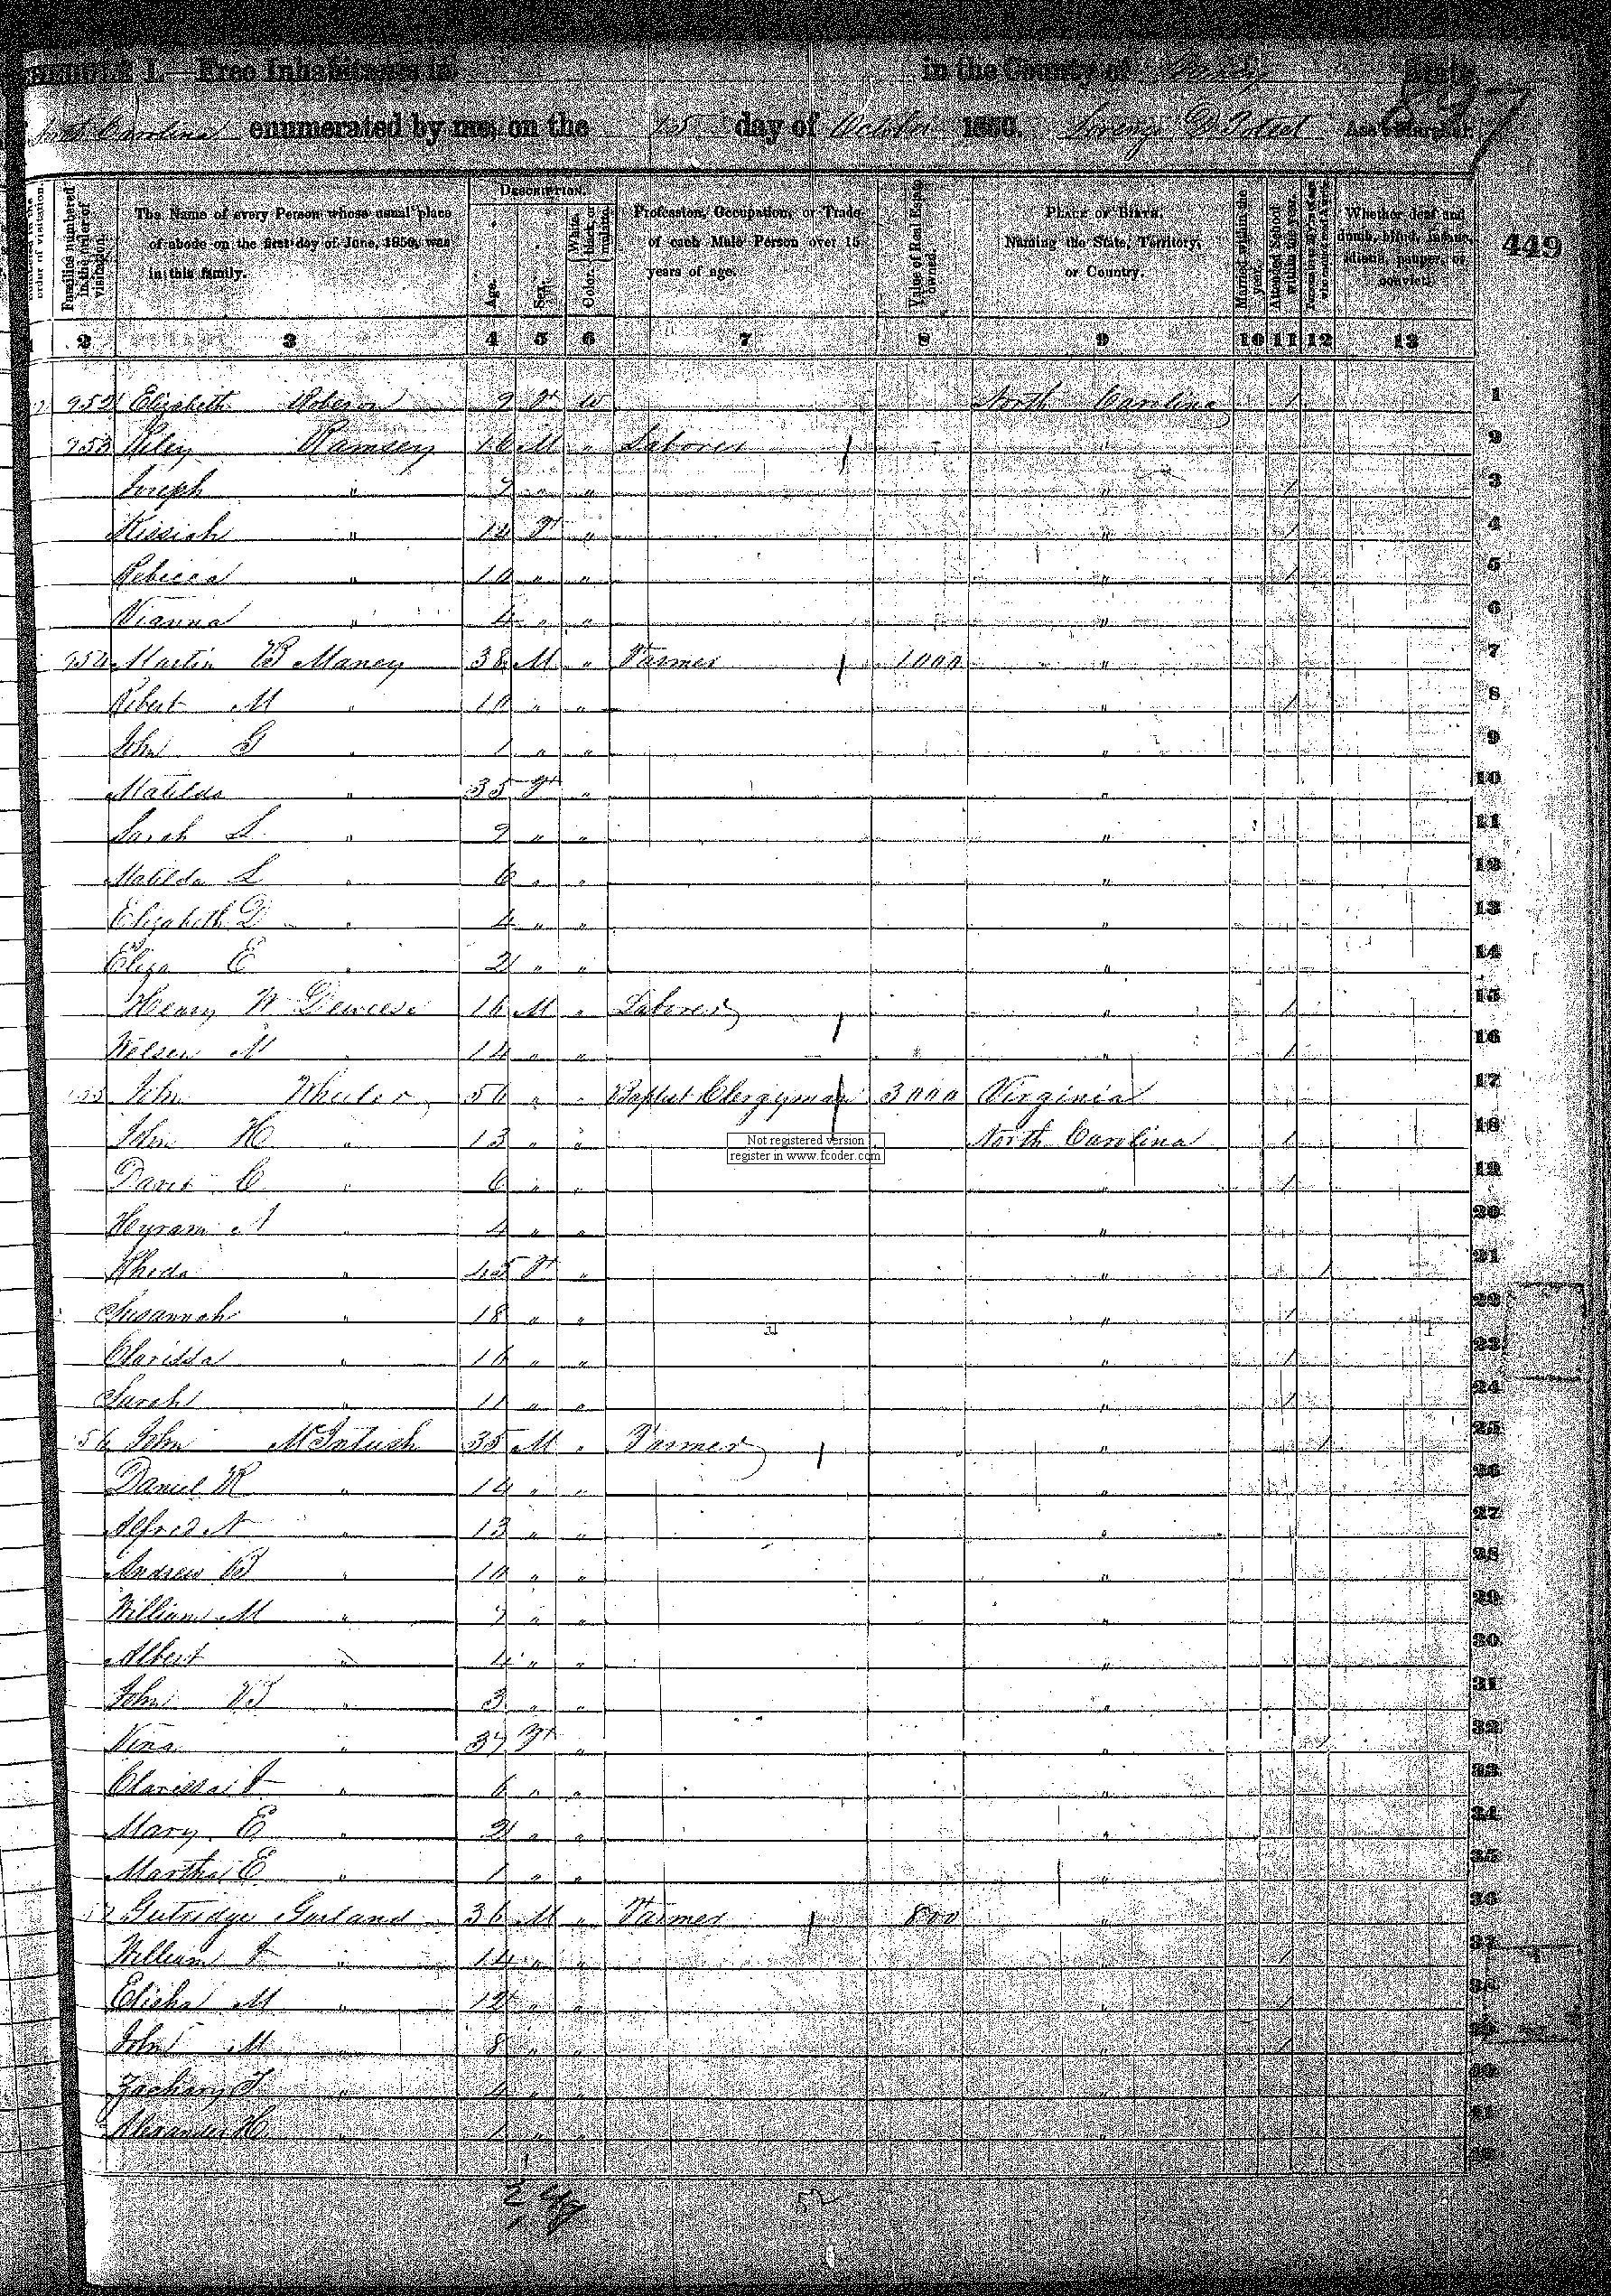 SCHEDULE I.—Free Inhabitants in in the County of Yancy State
North Carolina enumerated by me, on the 15 day of October 1850. Ass't Marshal.
DESCRIPTION.
Families numbered in the order of visitation.
The Name of every Person whose usual place of abode on the first day of June, 1850, was in this family.
Age.
Sex.
Color. White, black, or mulatto.
Profession, Occupation, or Trade of each Male Person over 15 years of age.
Value of Real Estate owned.
PLACE OF BIRTH, Naming the State, Territory, or Country.
Married within the year.
Attended School within the year.
Whether deaf and dumb, blind, insane, idiotic, pauper, or convict.
449
2 3 4 5 6 7 8 9 10 11 12 13
952 Elizabeth Roberson 9 F W North Carolina 1 1
953 Riley Ramsey 16 M " Laborer " 2
Joseph " 7 " " " 1 3
Kissiah " 14 F " " 1 4
Rebecca " 10 " " " 1 5
Vianna " 4 " " " 6
954 Martin B Maney 38 M " Farmer 1000 " 7
Robert M " 10 " " " 1 8
John G " 1 " " " 9
Matilda " 35 F " " 10
Sarah L " 9 " " " 11
Matilda L " 6 " " " 12
Elizabeth D " 4 " " " 13
Eliza E " 2 " " " 14
Henry W Deweese 16 M " Laborer " 1 15
Nelson M " 14 " " " 1 16
John Wheeler 50 " " Baptist Clergyman 3000 Virginia 17
John H " 13 " " North Carolina 1 18
Not registered version
register in www.fcoder.com
David C " 6 " " " 1 19
Hyram " 4 " " " 20
Rhoda " 45 F " " 1 21
Susannah " 18 " " " 1 22
Clarissa " 16 " " " 1 23
Sarah " 11 " " " 1 24
56 John McIntush 35 M " Farmer " 1 25
Daniel W " 14 " " " 26
Alfred N " 13 " " " 27
Andrew B " 10 " " " 28
William M " 7 " " " 29
Albert " 4 " " " 30
John " 3 " " " 31
Vina " 37 F " " 1 32
Clarissa " 6 " " " 33
Mary E " 2 " " " 34
Martha E " 1 " " " 35
Gutridge Garland 36 M " Farmer 800 " 36
William " 14 " " " 1 37
Elisha M " 12 " " " 1 38
John M " 8 " " " 1 39
Zachary T " 4 " " " 40
Alexander H " 1 " " " 41
42